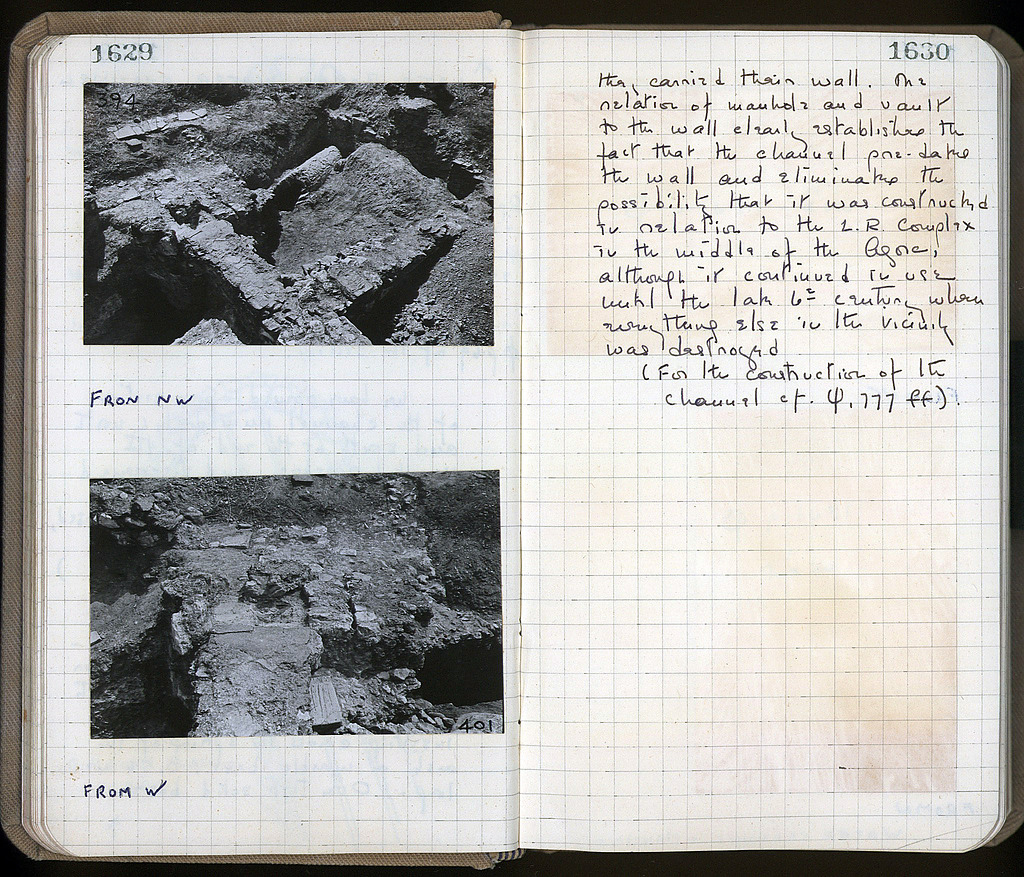 1629
394
FRON NW
401
FROM W
1630
they carried their wall. The
relation of manhole and vault
to the wall clearly establishes the
fact that the channel pre-dates
the wall and eliminates the
possibility that it was constructed
in relation to the L.R. Complex
in the middle of the Agora,
although it continued in use
until the late 6th century when
everything else in the vicinity
was destroyed
(For the construction of the
channel cf. Ψ, 777 ff).